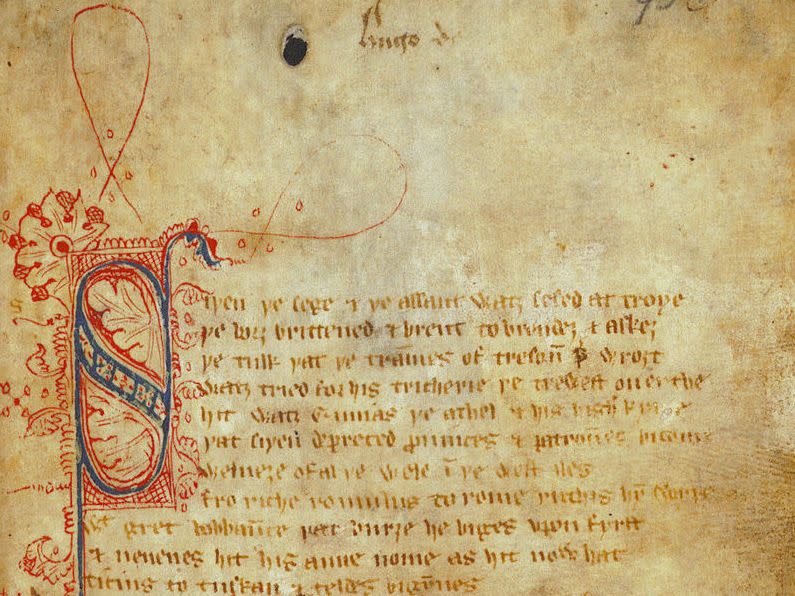 Hugo de
Siþen þe sege & þe assaut watȝ sesed at troye
þe borȝ brittened & brent to brondeȝ & askeȝ
þe tulk þat þe tram̄es of tresou̅ þ̅ wroȝt
watȝ tried for his tricherie þe trewest on erthe
hit watȝ Ennias þe athel & his highe kynde
þat siþen depreced prouinces & patrou̅es bicome
welneȝe of al þe wele i̅ þe west iles
fro riche romulus to rome ricchis hy̅ swyþe
wt gret bobbau̅ce þat burȝe he biges vpon fyrst
& neuenes hit his aune nome as hit now hat
ticius to tuskan & teldes bigy̅nes